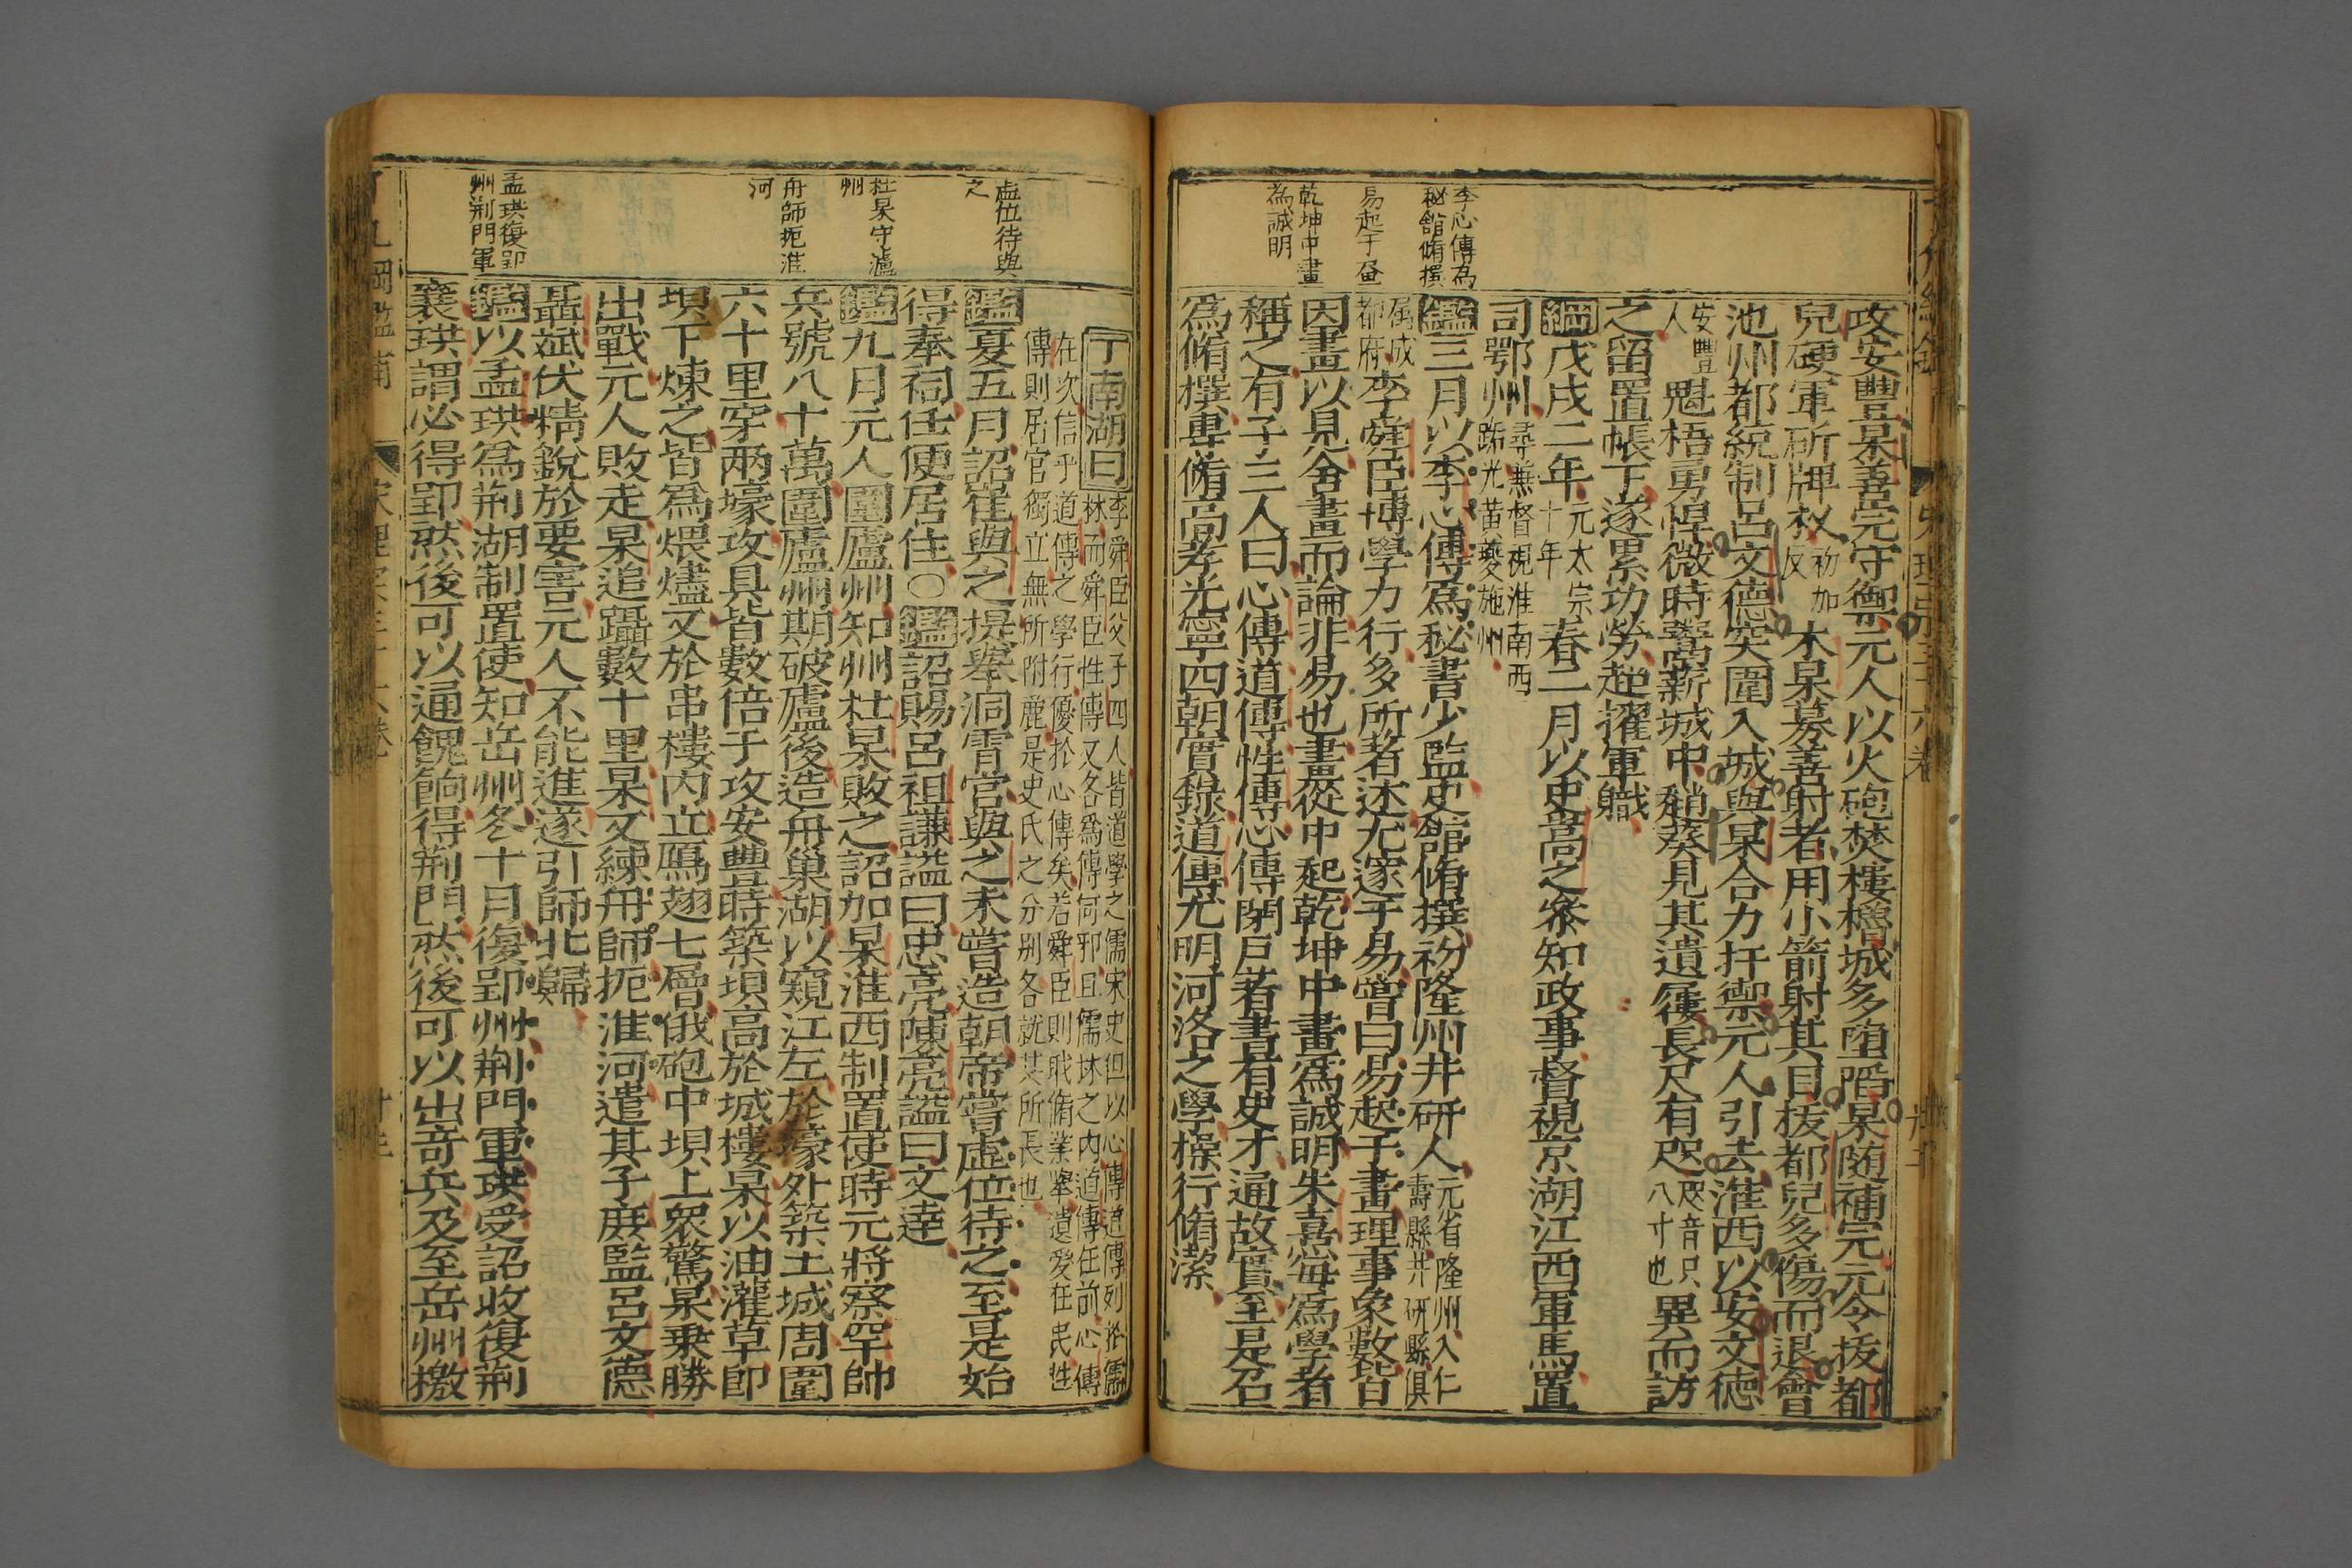 李心傳為
秘館脩撰
易起于畫
乾坤中畫
為誠明
攻安豐杲善完守禦元人以火砲焚樓櫓城多墮陷杲随補完元令抜都
兒硬軍斫牌杈
初加
反
木杲募善射者用小箭射其目抜都兒多傷而退會
池州都統制呂文德突圍入城與杲合力扞禦元人引去淮西以安文德
安豐
人
魁梧勇悍微時鬻薪城中趙葵見其遺屨長尺有咫
咫音只
八寸也
異而訪
之留置帳下遂累功勞超擢軍職
綱戊戌二年
元太宗
十年
春二月以史嵩之參知政事督視京湖江西軍馬置
司鄂州
尋兼督視淮南西
路光黃夔施州
鑑三月以李心傳爲秘書少監史館脩撰初隆州井研人
元省隆州入仁
壽縣井研縣俱
属成
都府
李舜臣博學力行多所著述尤邃于易嘗曰易起于畫理事象數皆
因畫以見舍畫而論非易也畫從中起乾坤中畫爲誠明朱熹每爲學者
稱之有子三人曰心傳道傳性傳心傳閉戸著書有史才通故實至是召
爲脩撰專脩高孝光寧四朝實錄道傳尤明河洛之學操行脩潔
虛位待與
之
杜杲守瀘
州
舟師扼淮
河
孟珙復郢
州荆門軍
丁南湖曰
李舜臣父子四人皆道學之儒宋史但以心傳道傳列於儒
林而舜臣性傳又各爲傳何邪且儒林之内道傳任前心傳
在次信乎道傳之學行優於心傳矣若舜臣則職脩業舉遺愛在民性
傳則居官獨立無所附麗是史氏之分別各就其所長也
鑑夏五月詔崔與之提舉洞霄宮與之未嘗造朝帝嘗虛位待之至是始
得奉祠任便居住○鑑詔賜呂祖謙謚曰忠亮陳亮謚曰文達
鑑九月元人圍廬州知州杜杲敗之詔加杲淮西制置使時元將察罕帥
兵號八十萬圍廬州期破廬後造舟巢湖以窺江左於濠外築土城周圍
六十里穿兩壕攻具皆數倍于攻安豐時築垻高於城樓杲以油灌草即
垻下煉之皆爲煨燼又於串樓内立鴈翅七層俄砲中垻上衆驚杲乗勝
出戰元人敗走杲追躡數十里杲又練舟師扼淮河遣其子庶監呂文德
聶斌伏精銳於要害元人不能進遂引師北歸
鑑以孟珙爲荆湖制置使知岳州冬十月復郢州荆門軍珙受詔收復荆
襄珙謂必得郢然後可以通餽餉得荆門然後可以出竒兵及至岳州檄